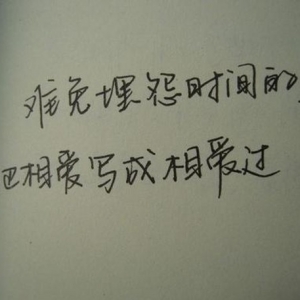 难免埋怨时间的
把相爱写成相爱过